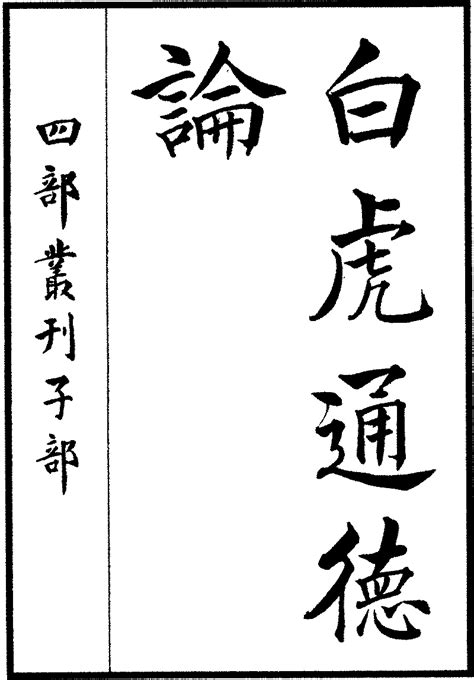 白虎通德
論
四部叢刊子部